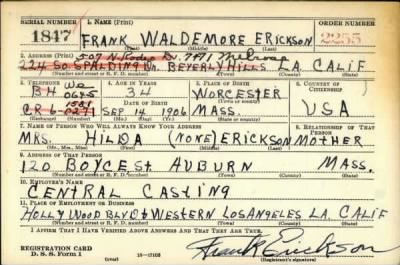 SERIAL NUMBER 1. NAME (Print) ORDER NUMBER
1847 FRANK WALDEMORE ERICKSON 2255
(First) (Middle) (Last)
2. ADDRESS (Print) 507 N. Rodeo Dr. 7471 Melrose
224 SO SPALDING DR. BEVERLY HILLS L.A. CALIF
(Number and street or R. F. D. number) (Town) (County) (State)
3. TELEPHONE 4. AGE IN YEARS 5. PLACE OF BIRTH 6. COUNTRY OF CITIZENSHIP
BH 34 WORCESTER
DATE OF BIRTH (Town or county)
CR 6- SEP 14 1906 MASS. USA
(Exchange) (Number) (Mo.) (Day) (Yr.) (State or country)
7. NAME OF PERSON WHO WILL ALWAYS KNOW YOUR ADDRESS 8. RELATIONSHIP OF THAT PERSON
MRS. HILDA (NONE) ERICKSON MOTHER
(Mr., Mrs., Miss) (First) (Middle) (Last)
9. ADDRESS OF THAT PERSON
120 BOYCE ST AUBURN MASS.
(Number and street or R. F. D. number) (Town) (County) (State)
10. EMPLOYER'S NAME
CENTRAL CASTING
11. PLACE OF EMPLOYMENT OR BUSINESS
HOLLYWOOD BLVD & WESTERN LOS ANGELES L.A. CALIF
(Number and street or R. F. D. number) (Town) (County) (State)
I AFFIRM THAT I HAVE VERIFIED ABOVE ANSWERS AND THAT THEY ARE TRUE.
REGISTRATION CARD
D. S. S. Form 1 (over) 16-17105 Frank Erickson
(Registrant's signature)